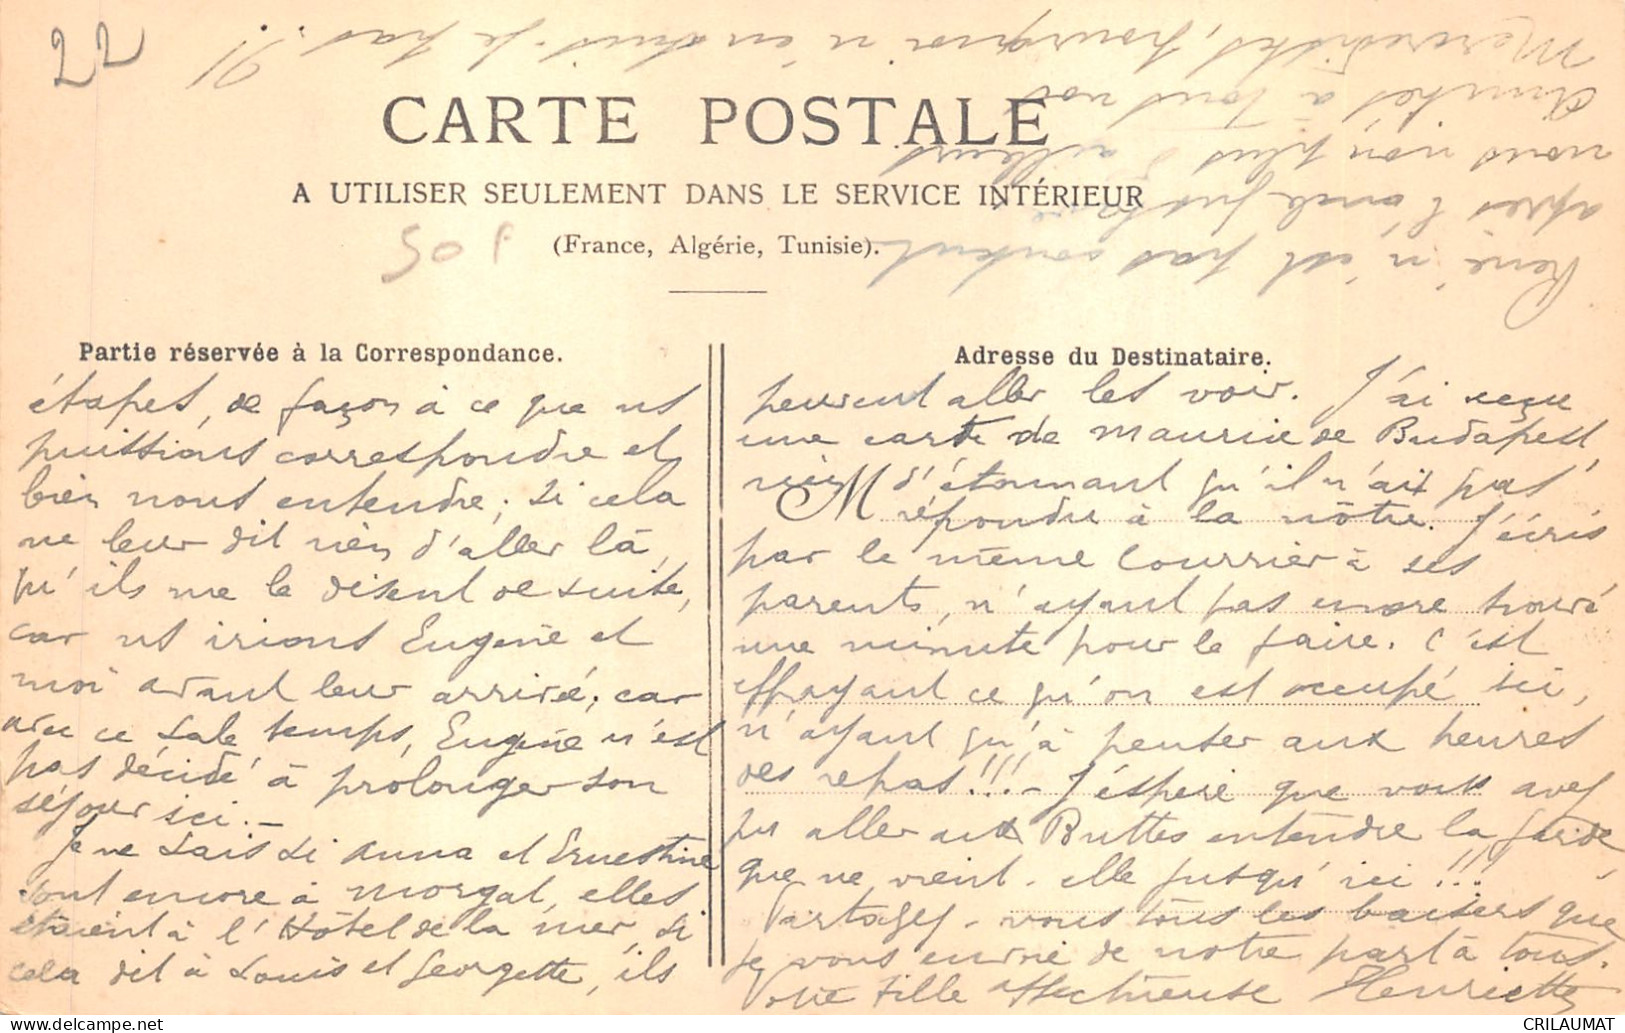 22
CARTE POSTALE
A UTILISER SEULEMENT DANS LE SERVICE INTÉRIEUR
(France, Algérie, Tunisie).
50f
Partie réservée à la Correspondance.
étapes, de façon à ce que ns
puissions correspondre et
bien nous entendre; si cela
ne leur dit rien d'aller là,
qu'ils me le disent de suite,
car ns irions Eugène et
moi avant leur arrivée; car
avec ce sale temps, Eugène n'est
pas décidé à prolonger son
séjour ici.-
Je ne sais si Anna et Ernestine
sont encore à Morgat, elles
étaient à l'Hôtel de la mer, si
cela dit à Louis et Georgette, ils
Adresse du Destinataire.
peuvent aller les voir. J'ai reçu
une carte de Maurice de Budapest,
rien d'étonnant qu'il n'ait pas
M
répondu à la nôtre. J'écris
par le même courrier à ses
parents, n'ayant pas encore trouvé
une minute pour le faire. C'est
effrayant ce qu'on est occupé ici,
n'ayant qu'à penser aux heures
des repas!!!- J'espère que vous avez
pu aller aux Buttes entendre la garde,
que ne vient-elle jusqu'ici!!!
Partagez-vous tous les baisers que
je vous envoie de notre part à tous.
Votre fille affectueuse Henriette
René n'est pas content
après l'oncle
nous non plus d'ailleurs
Amitiés à tous vos
pourquoi n'en suis-je pas?!
CRILAUMAT